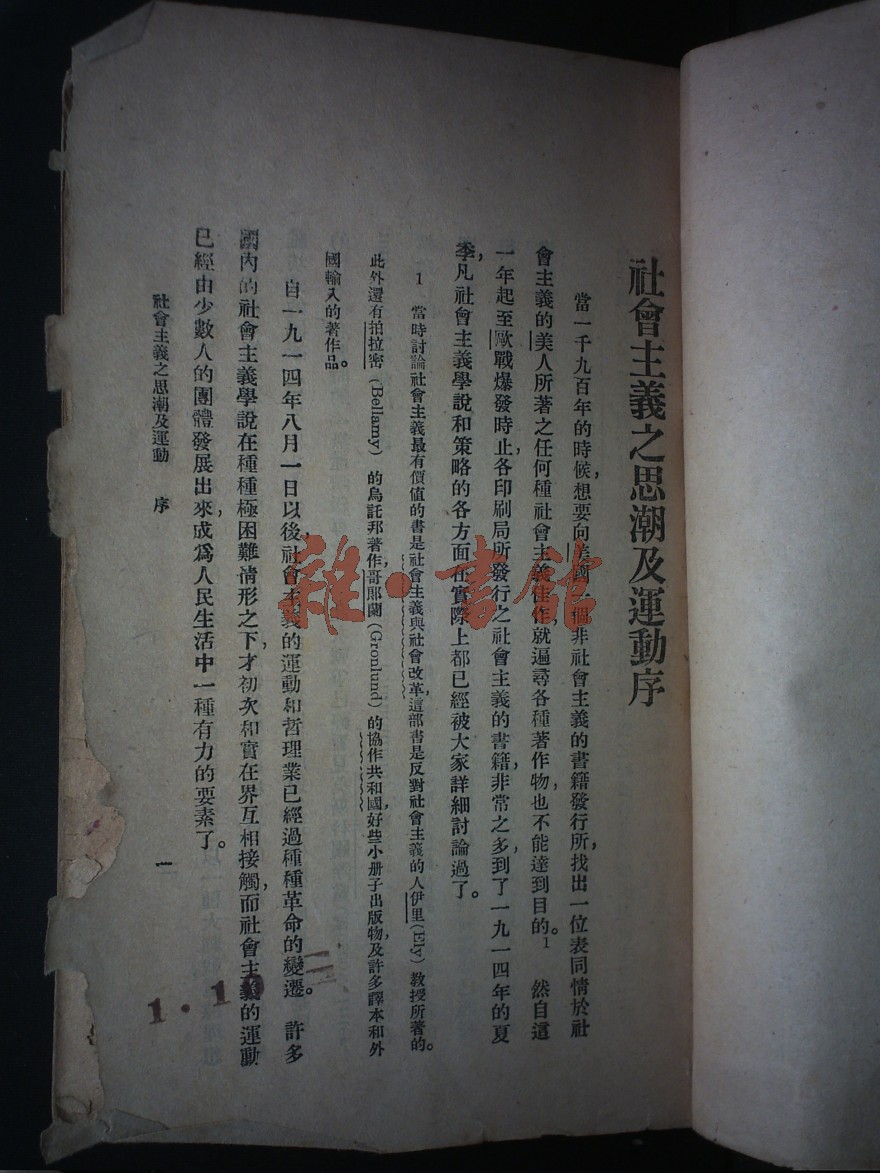 社會主義之思潮及運動序
當一千九百年的時候,想要向美國一個非社會主義的書籍發行所,找出一位表同情於社
會主義的美人所著之任何種社會主義佳作,就遍尋各種著作物,也不能達到目的。1 然自這
一年起至歐戰爆發時止各印刷局所發行之社會主義的書籍,非常之多,到了一九一四年的夏
季,凡社會主義學說和策略的各方面在實際上都已經被大家詳細討論過了。
1 當時討論社會主義最有價值的書是社會主義與社會改革,這部書是反對社會主義的人伊里(Ely)教授所著的。
此外還有拍拉密(Bellamy)的烏託邦著作,哥郎蘭(Gronlund)的協作共和國,好些小册子出版物,及許多譯本和外
國輸入的著作品。
自一九一四年八月一日以後社會主義的運動和哲理業已經過種種革命的變遷。 許多
國內的社會主義學說在種種極困難情形之下才初次和實在界互相接觸,而社會主義的運動
已經由少數人的團體發展出來,成爲人民生活中一種有力的要素了。
社會主義之思潮及運動 序
一
雜·書館